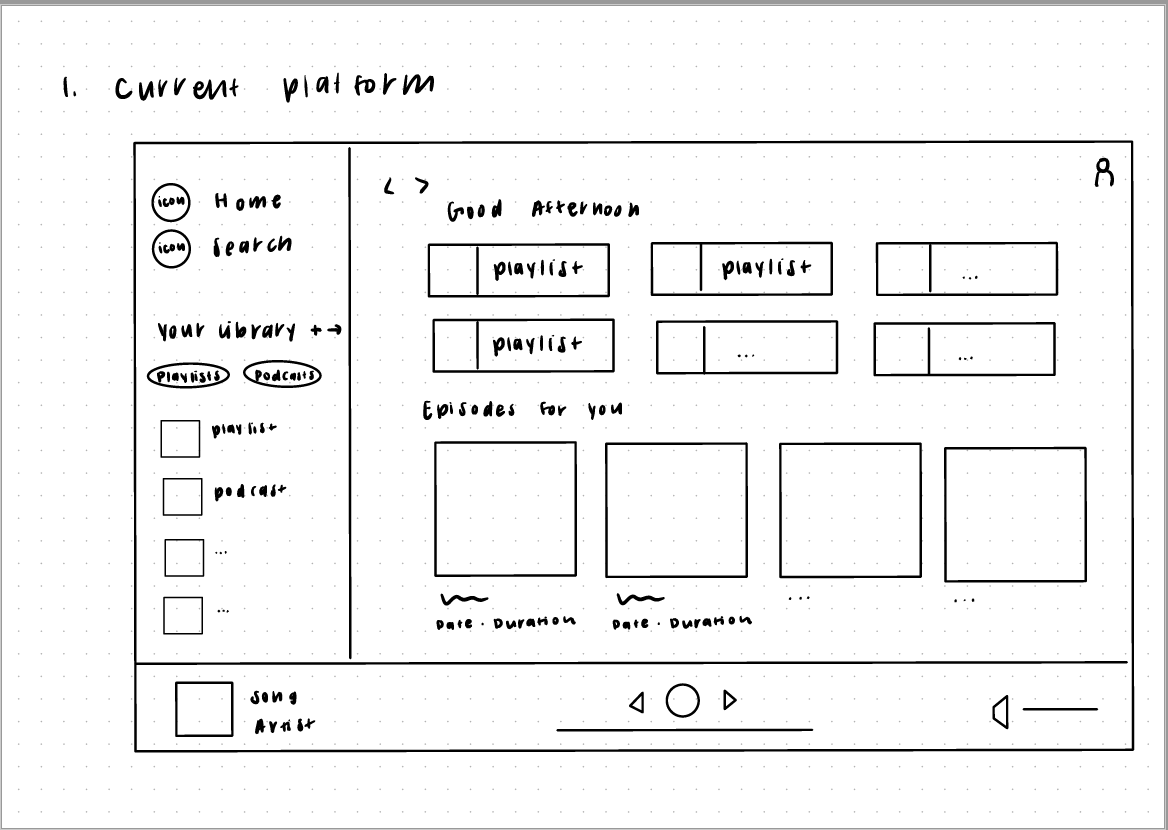 1. Current platform
icon Home
icon Search
Your Library + →
Playlists Podcasts
playlist
podcast
...
...
< >
Good Afternoon
playlist playlist ...
playlist ... ...
Episodes for you
Date · Duration Date · Duration ... ...
Song
Artist